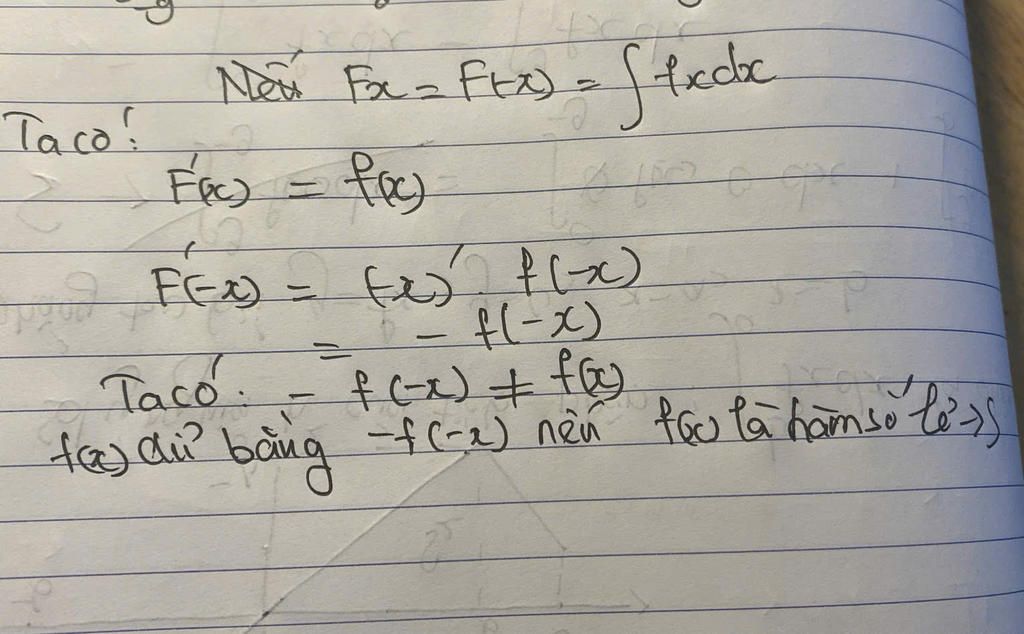 Nếu Fx = F(-x) = ∫ fxdx
Ta có:
F'(x) = f(x)
F'(-x) = (-x)' f(-x)
= - f(-x)
Ta có: - f(-x) ≠ f(x)
f(x) chỉ bằng -f(-x) nếu f(x) là hàm số lẻ → S